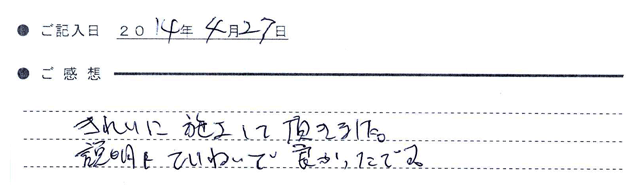 ● ご記入日 2014年4月27日
● ご感想
きれいに施工して頂えました。
説明もていねいで良かったです